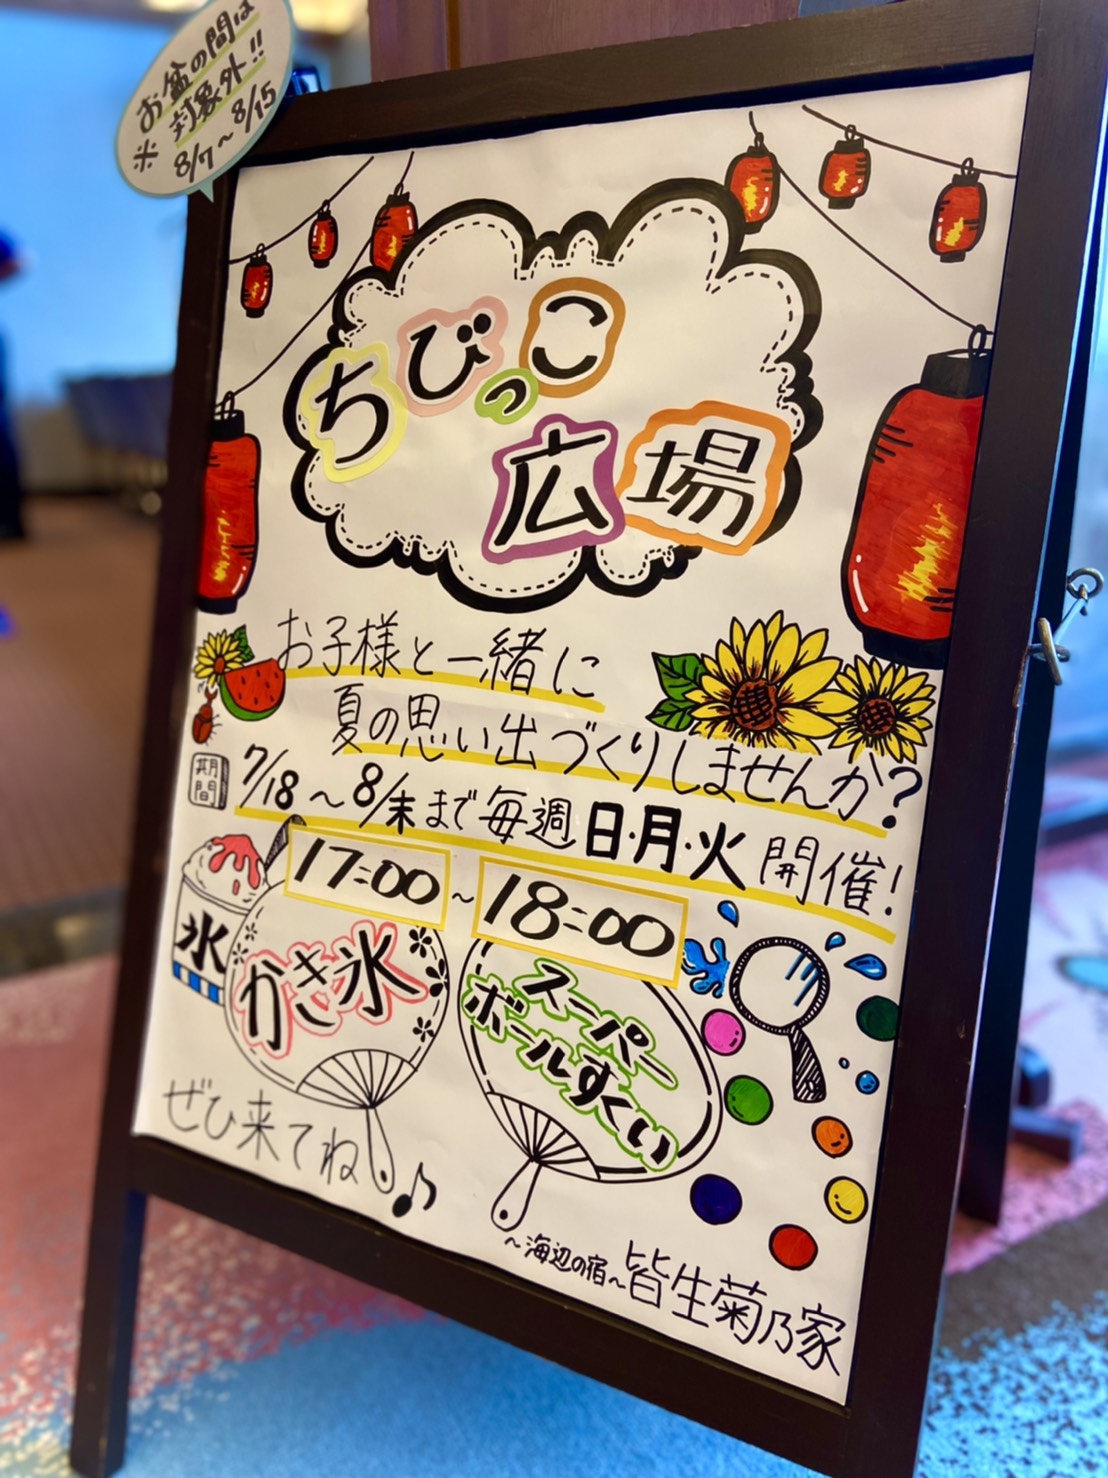 お盆の間は
※対象外!!
8/7～8/15
ちびっこ
広場
お子様と一緒に
夏の思い出づくりしませんか?
期間
7/18～8/末まで毎週日・月・火開催!
17:00～18:00
氷
かき氷
スーパー
ボールすくい
ぜひ来てね♪
～海辺の宿～皆生菊乃家